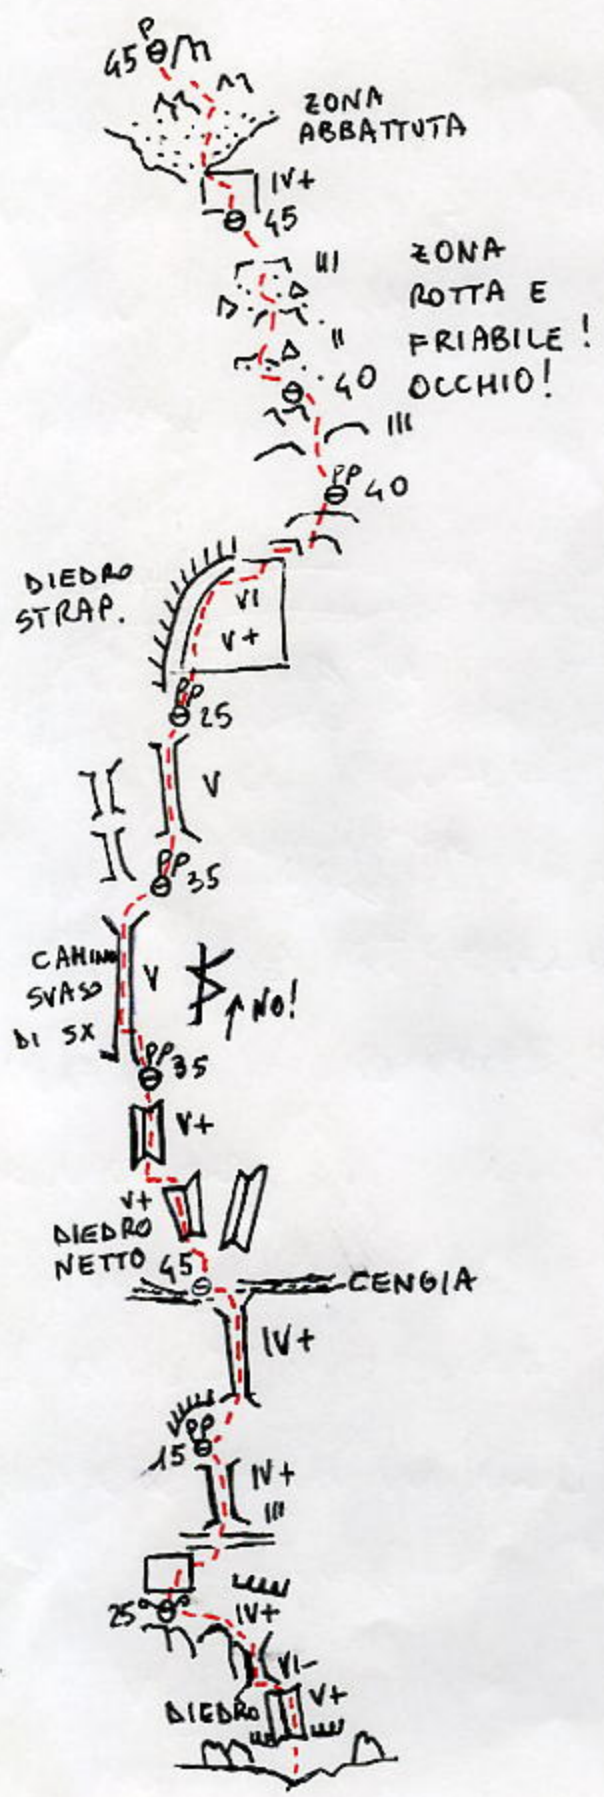 P
45
ZONA
ABBATTUTA
IV+
45
III
ZONA
ROTTA E
FRIABILE!
OCCHIO!
II
40
III
PP
40
DIEDRO
STRAP.
VI
V+
PP
25
V
PP
35
CAMINO
SVASO
DI SX
V
NO!
PP
35
V+
V+
DIEDRO
NETTO
45
CENGIA
IV+
PP
15
IV+
III
25
IV+
VI-
V+
DIEDRO